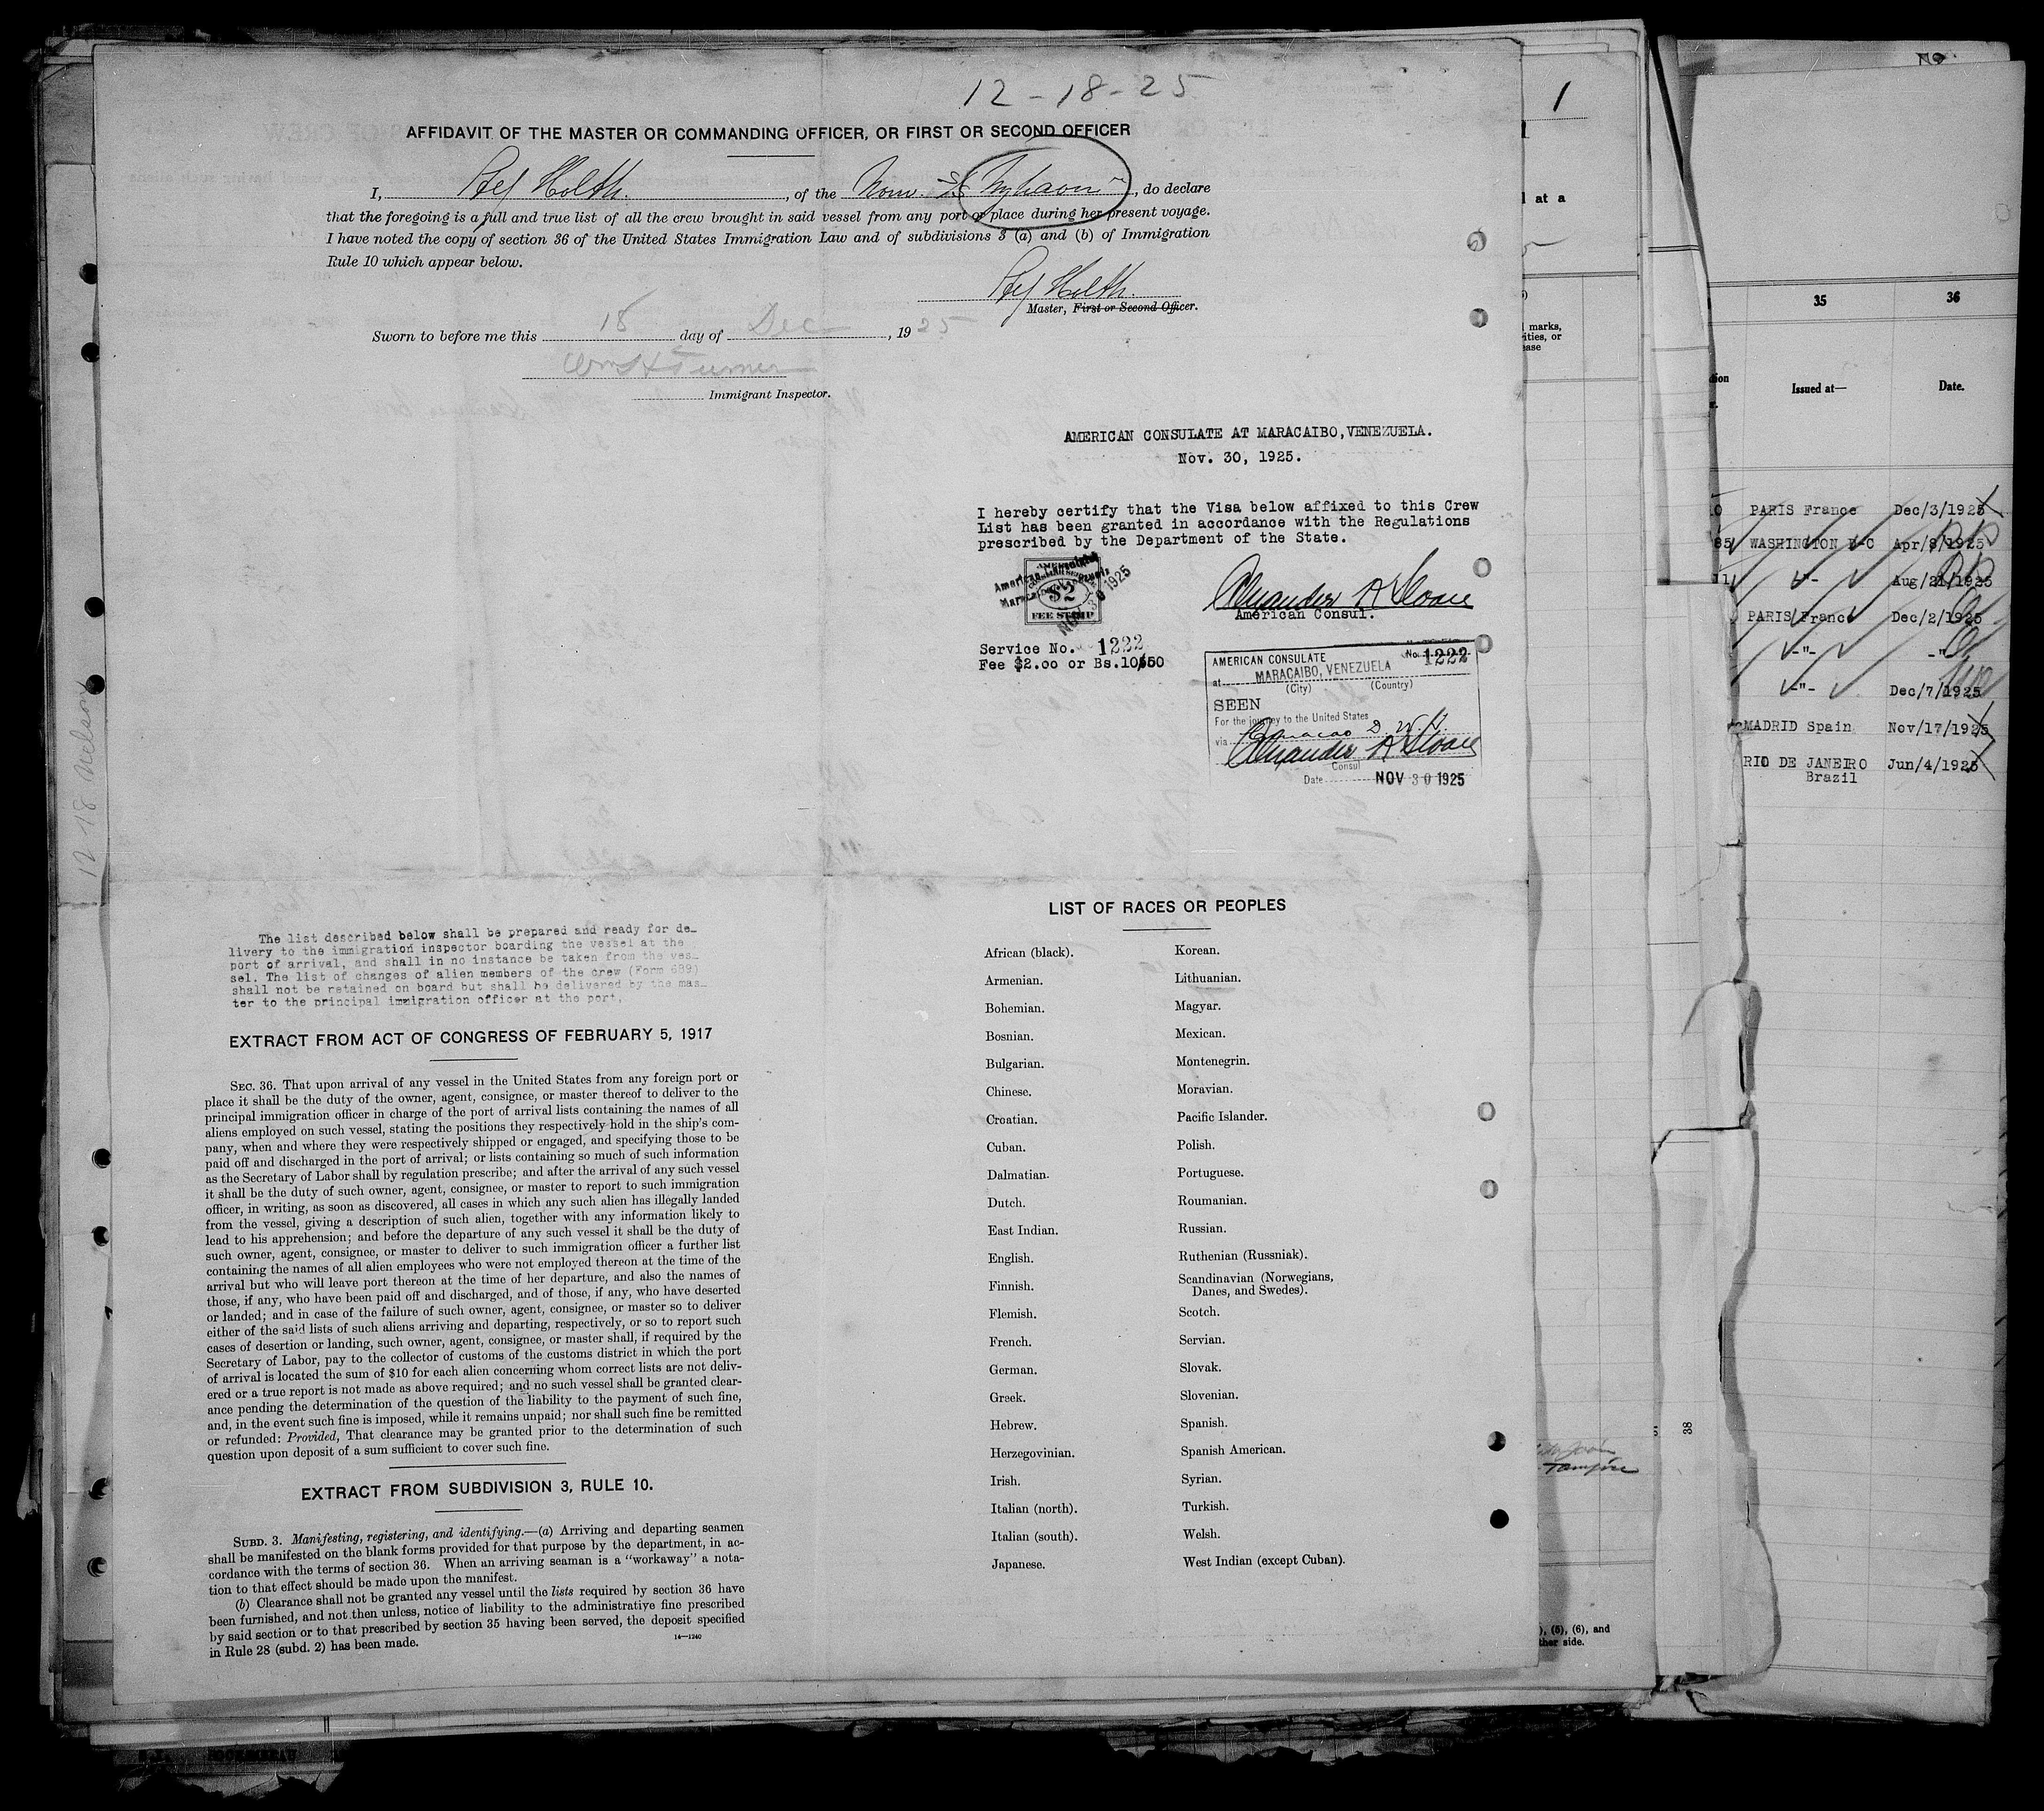 12-18-25
AFFIDAVIT OF THE MASTER OR COMMANDING OFFICER, OR FIRST OR SECOND OFFICER
I, Holth., of the Norw. SS, do declare
that the foregoing is a full and true list of all the crew brought in said vessel from any port or place during her present voyage.
I have noted the copy of section 36 of the United States Immigration Law and of subdivisions 3 (a) and (b) of Immigration
Rule 10 which appear below.
Holth.
Master, First or Second Officer.
Sworn to before me this 18 day of Dec, 1925
Wm H Turner
Immigrant Inspector.
AMERICAN CONSULATE AT MARACAIBO, VENEZUELA.
Nov. 30, 1925.
I hereby certify that the Visa below affixed to this Crew
List has been granted in accordance with the Regulations
prescribed by the Department of the State.
$2
FEE STAMP
Alexander K Sloan
American Consul.
Service No. 1222
Fee $2.00 or Bs.10.50
AMERICAN CONSULATE No. 1222
at MARACAIBO, VENEZUELA
(City) (Country)
SEEN
For the journey to the United States
via Curacao
Alexander K Sloan
Consul
Date NOV 30 1925
12-18 Nelson
The list described below shall be prepared and ready for de-
livery to the immigration inspector boarding the vessel at the
port of arrival, and shall in no instance be taken from the ves-
sel. The list of changes of alien members of the crew (Form 689)
shall not be retained on board but shall be delivered by the mas-
ter to the principal immigration officer at the port.
EXTRACT FROM ACT OF CONGRESS OF FEBRUARY 5, 1917
SEC. 36. That upon arrival of any vessel in the United States from any foreign port or
place it shall be the duty of the owner, agent, consignee, or master thereof to deliver to the
principal immigration officer in charge of the port of arrival lists containing the names of all
aliens employed on such vessel, stating the positions they respectively hold in the ship's com-
pany, when and where they were respectively shipped or engaged, and specifying those to be
paid off and discharged in the port of arrival; or lists containing so much of such information
as the Secretary of Labor shall by regulation prescribe; and after the arrival of any such vessel
it shall be the duty of such owner, agent, consignee, or master to report to such immigration
officer, in writing, as soon as discovered, all cases in which any such alien has illegally landed
from the vessel, giving a description of such alien, together with any information likely to
lead to his apprehension; and before the departure of any such vessel it shall be the duty of
such owner, agent, consignee, or master to deliver to such immigration officer a further list
containing the names of all alien employees who were not employed thereon at the time of the
arrival but who will leave port thereon at the time of her departure, and also the names of
those, if any, who have been paid off and discharged, and of those, if any, who have deserted
or landed; and in case of the failure of such owner, agent, consignee, or master so to deliver
either of the said lists of such aliens arriving and departing, respectively, or so to report such
cases of desertion or landing, such owner, agent, consignee, or master shall, if required by the
Secretary of Labor, pay to the collector of customs of the customs district in which the port
of arrival is located the sum of $10 for each alien concerning whom correct lists are not deliv-
ered or a true report is not made as above required; and no such vessel shall be granted clear-
ance pending the determination of the question of the liability to the payment of such fine,
and, in the event such fine is imposed, while it remains unpaid; nor shall such fine be remitted
or refunded: Provided, That clearance may be granted prior to the determination of such
question upon deposit of a sum sufficient to cover such fine.
EXTRACT FROM SUBDIVISION 3, RULE 10.
SUBD. 3. Manifesting, registering, and identifying.—(a) Arriving and departing seamen
shall be manifested on the blank forms provided for that purpose by the department, in ac-
cordance with the terms of section 36. When an arriving seaman is a "workaway" a nota-
tion to that effect should be made upon the manifest.
(b) Clearance shall not be granted any vessel until the lists required by section 36 have
been furnished, and not then unless, notice of liability to the administrative fine prescribed
by said section or to that prescribed by section 35 having been served, the deposit specified
in Rule 28 (subd. 2) has been made.
14—1240
LIST OF RACES OR PEOPLES
African (black). Korean.
Armenian. Lithuanian.
Bohemian. Magyar.
Bosnian. Mexican.
Bulgarian. Montenegrin.
Chinese. Moravian.
Croatian. Pacific Islander.
Cuban. Polish.
Dalmatian. Portuguese.
Dutch. Roumanian.
East Indian. Russian.
English. Ruthenian (Russniak).
Finnish. Scandinavian (Norwegians,
Danes, and Swedes).
Flemish. Scotch.
French. Servian.
German. Slovak.
Greek. Slovenian.
Hebrew. Spanish.
Herzegovinian. Spanish American.
Irish. Syrian.
Italian (north). Turkish.
Italian (south). Welsh.
Japanese. West Indian (except Cuban).
1
at a
marks,
ities, or
ease
), (5), (6), and
ther side.
38
35 36
Issued at— Date.
PARIS France Dec/3/1925
85 WASHINGTON D-C Apr/8/1925
11 -"- Aug/21/1925
PARIS France Dec/2/1925
-"- -"-
-"- Dec/7/1925
MADRID Spain Nov/17/1925
RIO DE JANEIRO Jun/4/1925
Brazil